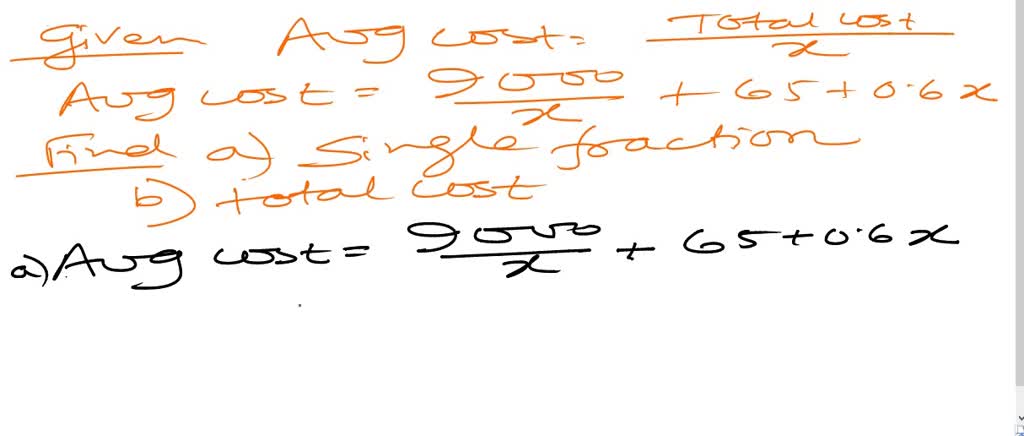 Given Avg cost = Total cost / x
Avg cost = 9000 / x + 65 + 0.6x
Find a) Single fraction
b) total cost
a) Avg cost = 9000 / x + 65 + 0.6x